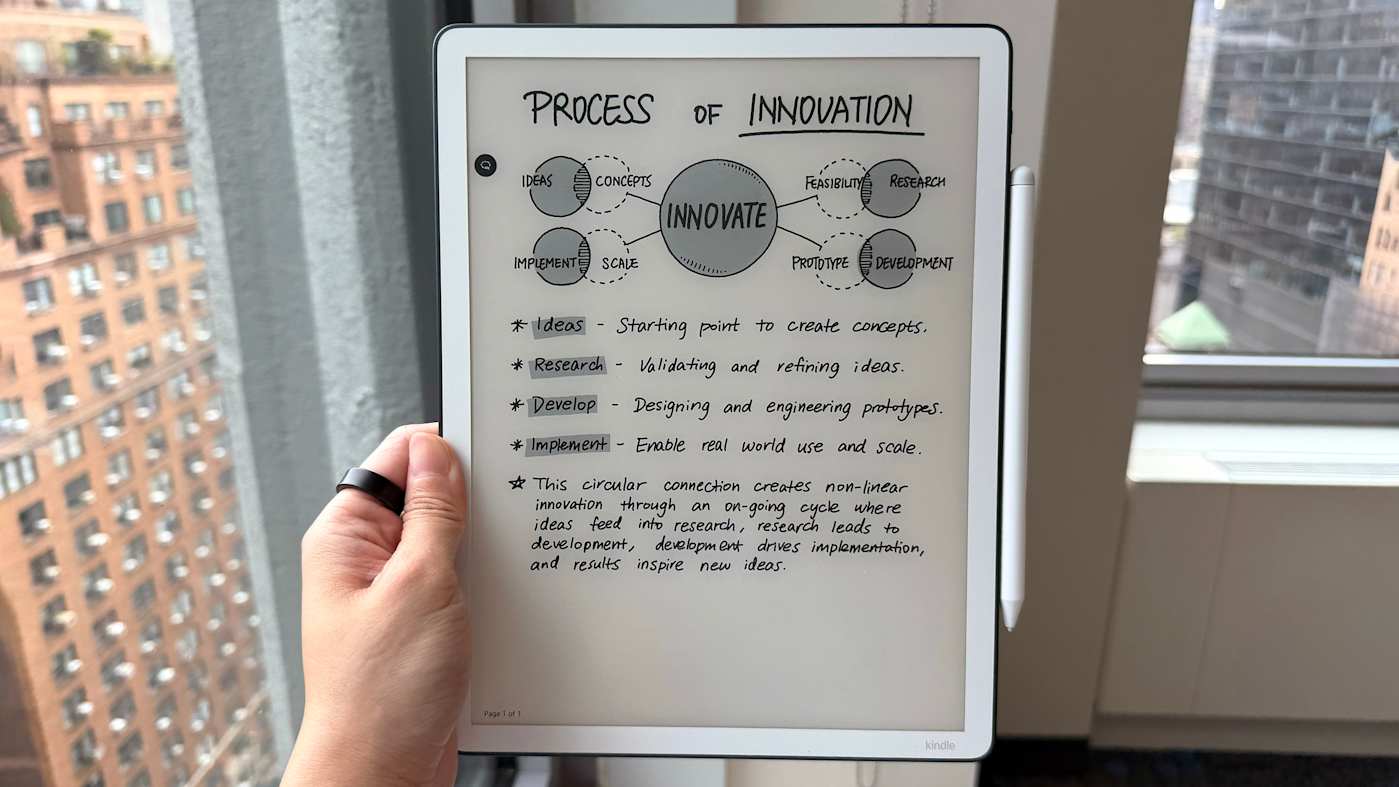 PROCESS OF INNOVATION
IDEAS CONCEPTS
INNOVATE
FEASIBILITY RESEARCH
IMPLEMENT SCALE
PROTOTYPE DEVELOPMENT
* Ideas - Starting point to create concepts.
* Research - Validating and refining ideas.
* Develop - Designing and engineering prototypes.
* Implement - Enable real world use and scale.
☆ This circular connection creates non-linear
innovation through an on-going cycle where
ideas feed into research, research leads to
development, development drives implementation,
and results inspire new ideas.
Page 1 of 1
kindle